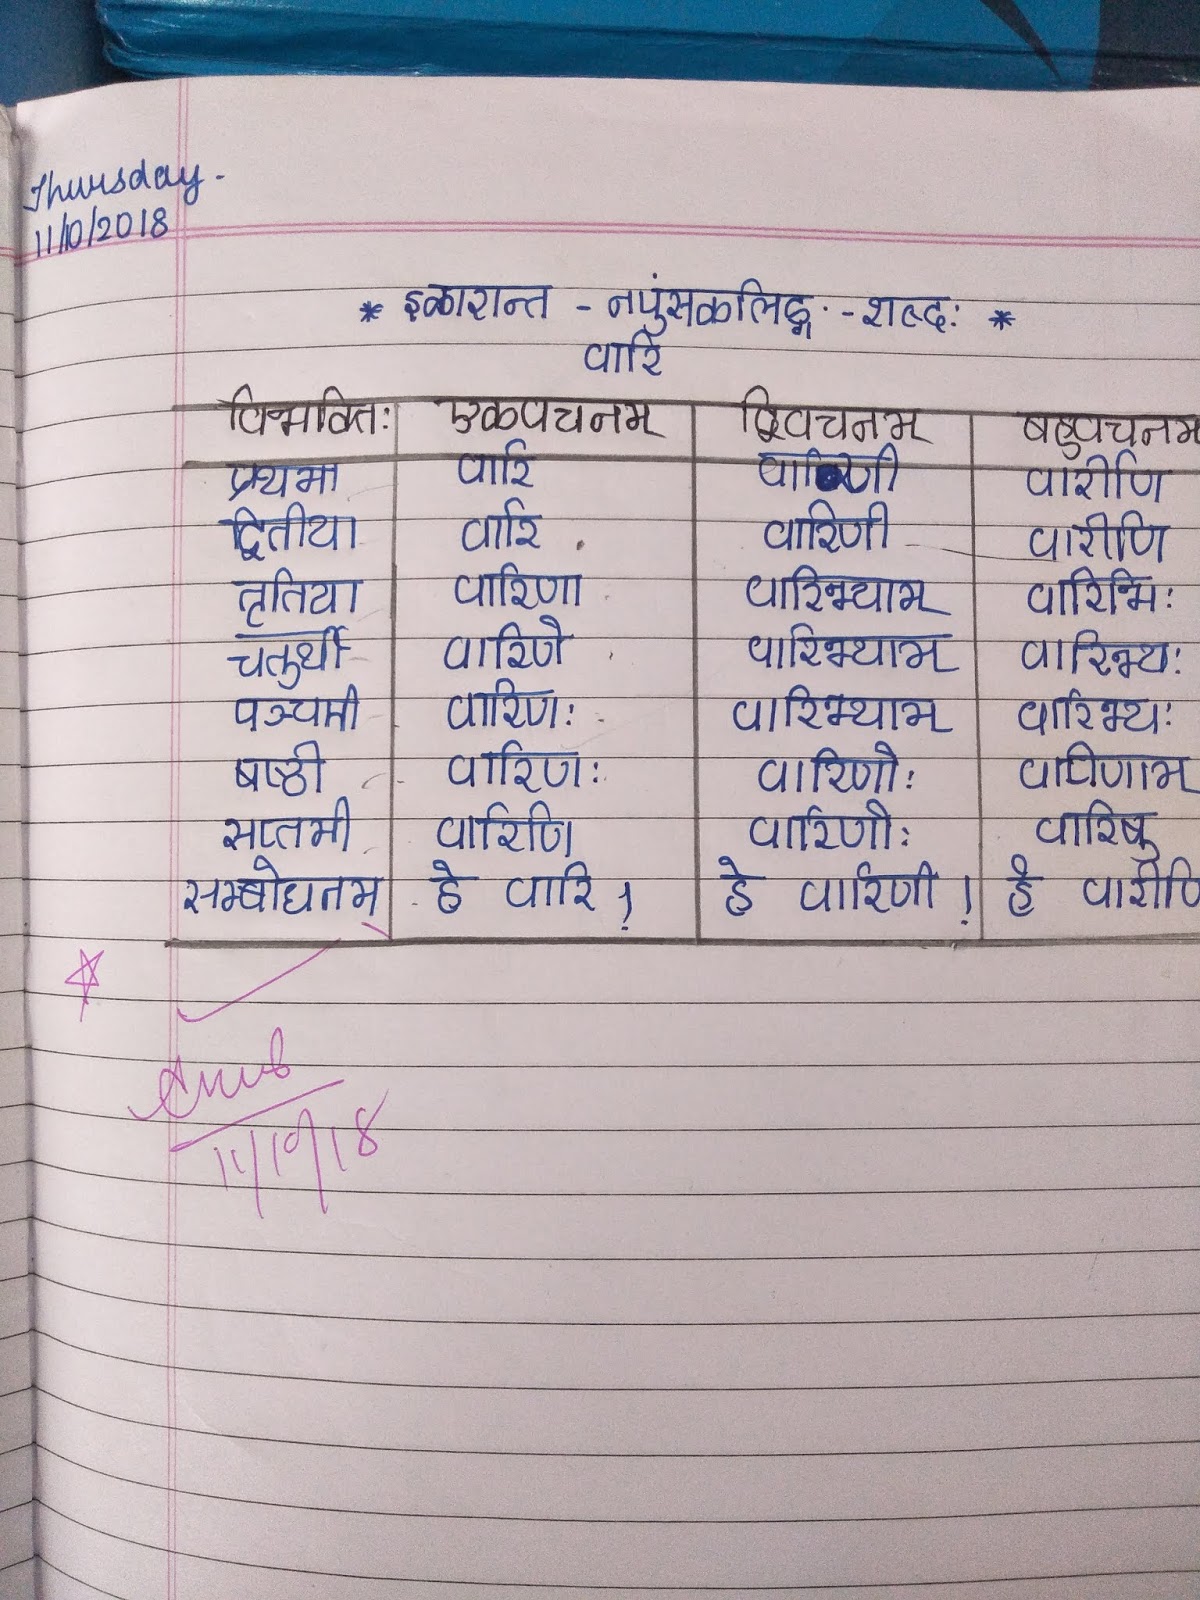 Thursday.
11/10/2018
* इकारान्त - नपुंसकलिङ्ग - शब्द: *
वारि
विभक्ति: एकवचनम् द्विवचनम् बहुवचनम्
प्रथमा वारि वारिणी वारीणि
द्वितीया वारि वारिणी वारीणि
तृतिया वारिणा वारिभ्याम् वारिभि:
चतुर्थी वारिणे वारिभ्याम् वारिभ्य:
पञ्चमी वारिण: वारिभ्याम् वारिभ्य:
षष्ठी वारिण: वारिणौ: वारिणाम्
सप्तमी वारिणि वारिणौ: वारिषु
सम्बोधनम् हे वारि ! हे वारिणी ! हे वारीणि
11/10/18